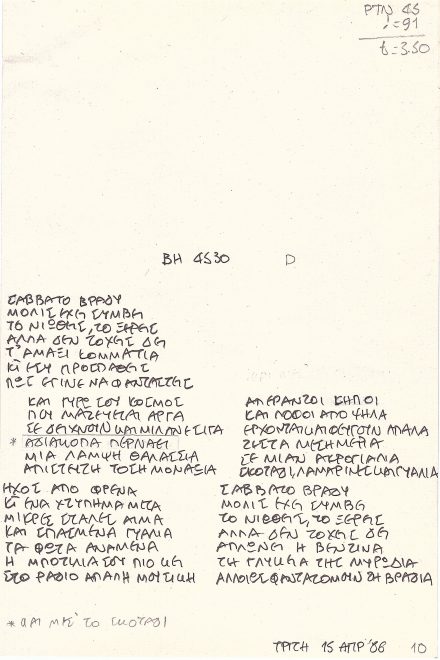 PTN 45
i=91
t=3.50
BH 4530 D
ΣΑΒΒΑΤΟ ΒΡΑΔΥ
ΜΟΛΙΣ ΕΧΕΙ ΣΥΜΒΕΙ
ΤΟ ΝΙΩΘΕΙΣ, ΤΟ ΞΕΡΕΙΣ
ΑΛΛΑ ΔΕΝ ΤΟΧΕΙΣ ΔΕΙ
Τ' ΑΜΑΞΙ ΚΟΜΜΑΤΙΑ
ΚΙ ΕΣΥ ΠΡΟΣΠΑΘΕΙΣ
ΠΩΣ ΕΓΙΝΕ ΝΑ ΦΑΝΤΑΣΤΕΙΣ
ΚΑΙ ΓΥΡΩ ΣΟΥ ΚΟΣΜΟΣ
ΠΟΥ ΜΑΖΕΥΕΤΑΙ ΑΡΓΑ
ΣΕ ΔΕΙΧΝΟΥΝ ΚΑΙ ΜΙΛΑΝΕ ΣΙΓΑ
* ΑΔΙΑΚΟΠΑ ΠΕΡΝΑΕΙ
ΜΙΑ ΛΑΜΨΗ ΘΑΛΑΣΣΙΑ
ΑΠΙΣΤΕΥΤΗ ΤΟΣΗ ΜΟΝΑΞΙΑ
ΑΠΕΡΑΝΤΟΙ ΚΗΠΟΙ
ΚΑΙ ΛΟΦΟΙ ΑΠΟ ΨΗΛΑ
ΕΡΧΟΝΤΑΙ ΚΑΙ ΦΕΥΓΟΥΝ ΑΠΑΛΑ
ΖΕΣΤΑ ΜΕΣΗΜΕΡΙΑ
ΣΕ ΜΙΑΝ ΑΚΡΟΓΙΑΛΙΑ
ΣΚΟΤΑΔΙ, ΛΑΜΑΡΙΝΕΣ ΚΑΙ ΓΥΑΛΙΑ
ΗΧΟΣ ΑΠΟ ΦΡΕΝΑ
ΚΙ ΕΝΑ ΧΤΥΠΗΜΑ ΜΕΤΑ
ΜΙΚΡΕΣ ΣΤΑΛΕΣ ΑΙΜΑ
ΚΑΙ ΣΠΑΣΜΕΝΑ ΓΥΑΛΙΑ
ΤΑ ΦΩΤΑ ΑΝΑΜΕΝΑ
Η ΜΠΟΤΙΛΙΑ ΣΟΥ ΠΙΟ ΚΕΙ
ΣΤΟ ΡΑΔΙΟ ΑΠΑΛΗ ΜΟΥΣΙΚΗ
ΣΑΒΒΑΤΟ ΒΡΑΔΥ
ΜΟΛΙΣ ΕΧΕΙ ΣΥΜΒΕΙ
ΤΟ ΝΙΩΘΕΙΣ, ΤΟ ΞΕΡΕΙΣ
ΑΛΛΑ ΔΕΝ ΤΟΧΕΙΣ ΔΕΙ
ΑΠΛΩΝΕΙ Η ΒΕΝΖΙΝΑ
ΤΗ ΓΛΥΚΕΙΑ ΤΗΣ ΜΥΡΩΔΙΑ
ΑΛΛΟΙΩΣ ΦΑΝΤΑΖΟΜΟΥΝ ΤΗ ΒΡΑΔΙΑ
* ΠΑΛΙ ΜΕΣ' ΤΟ ΣΚΟΤΑΔΙ
ΤΡΙΤΗ 15 ΑΠΡ '86 10